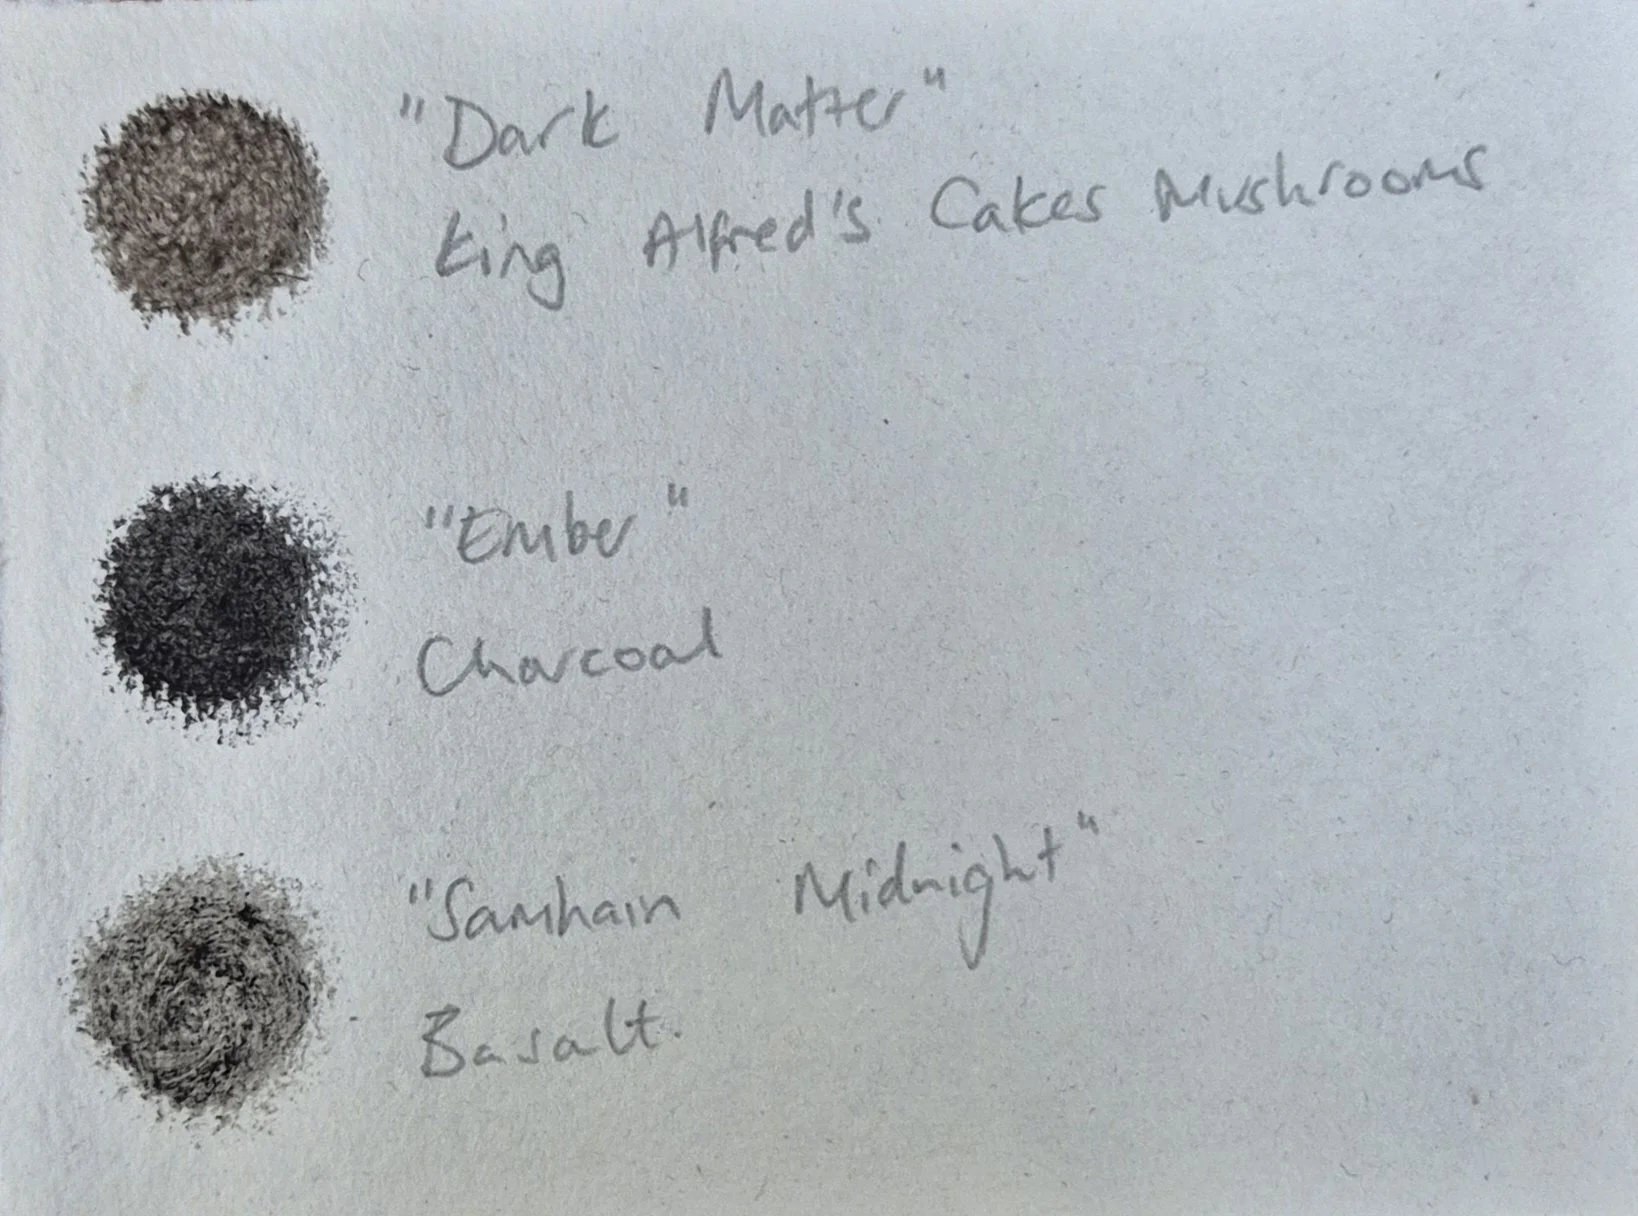 "Dark Matter"
King Alfred's Cakes Mushrooms
"Ember"
Charcoal
"Samhain Midnight"
Basalt.